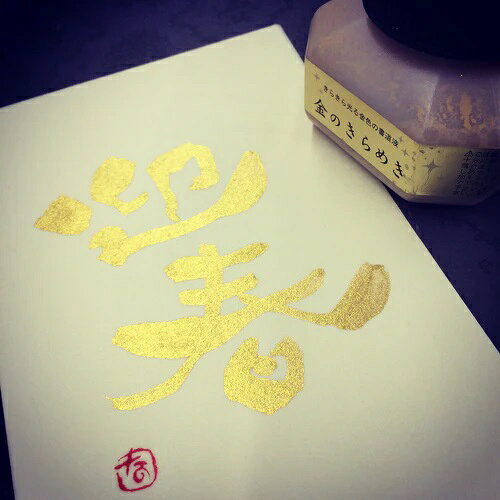 迎春
きらきら光る金色の書道液
金のきらめき